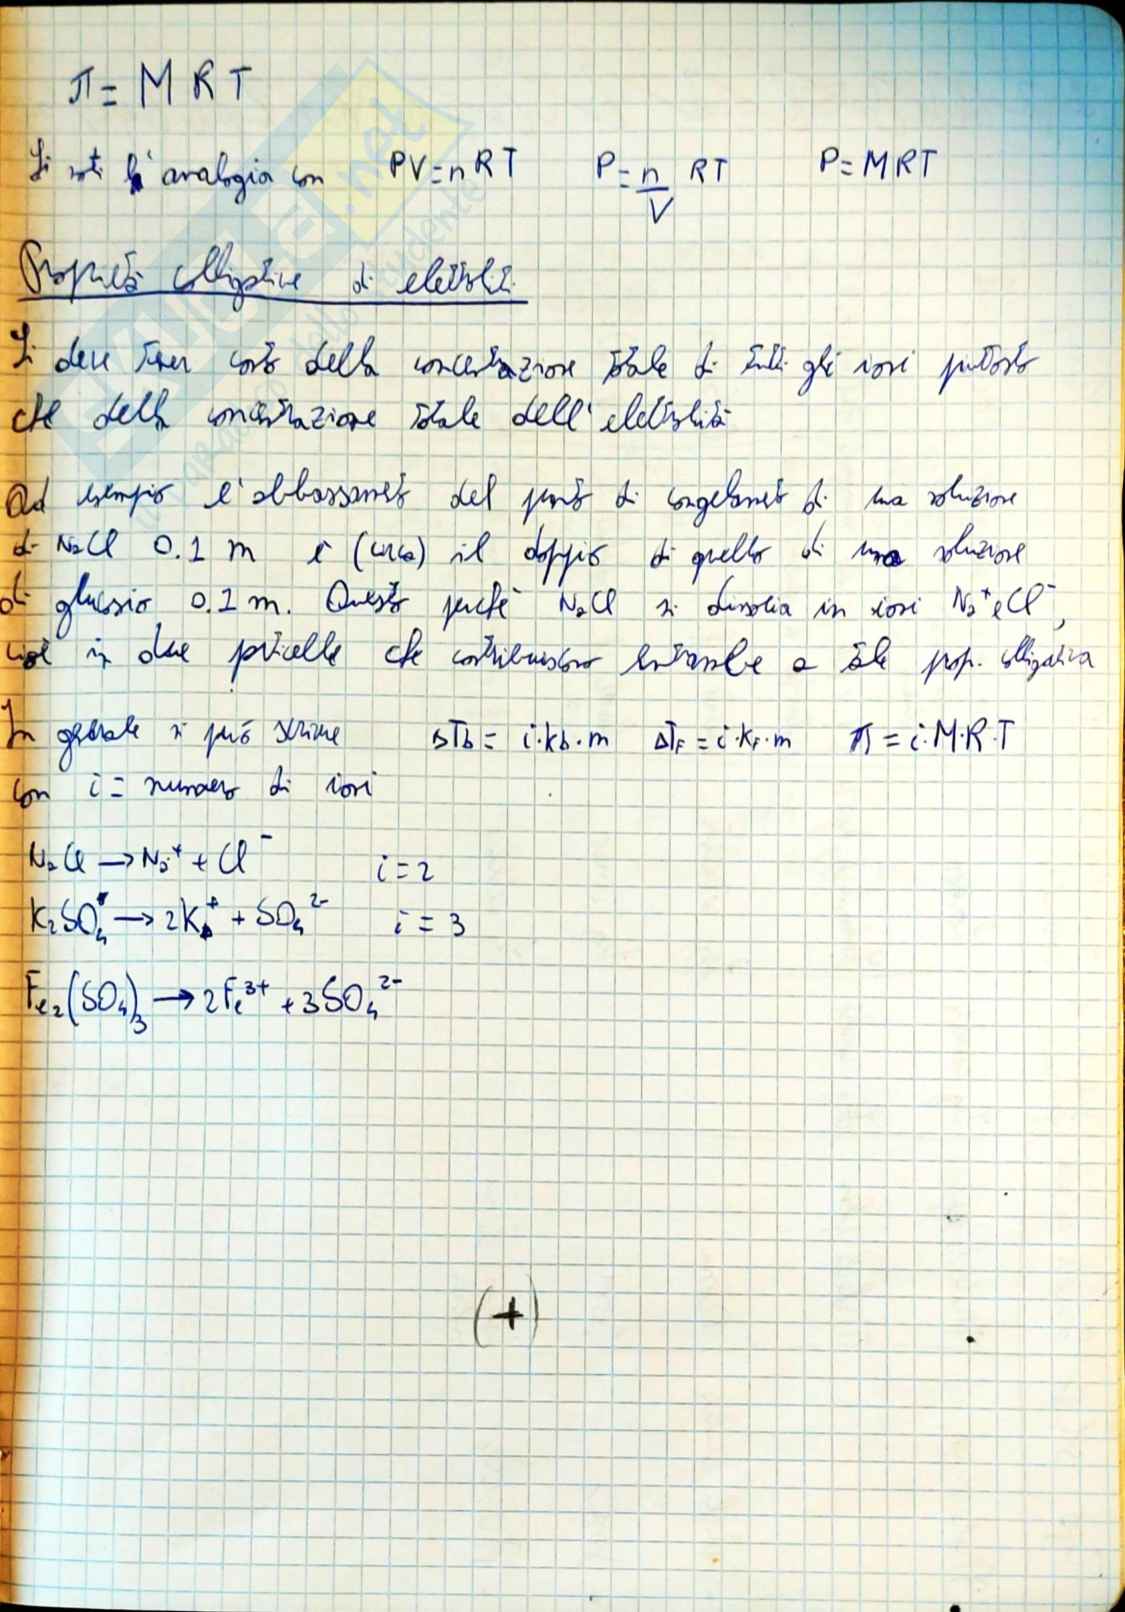 π = M R T
Si noti l'analogia con PV = nRT P = n/V RT P = MRT
Proprietà colligative di elettroliti
Si deve tener conto della concentrazione totale di tutti gli ioni piuttosto
che della concentrazione totale dell'elettrolita
Ad esempio l'abbassamento del punto di congelamento di una soluzione
di NaCl 0.1 m è (circa) il doppio di quello di una soluzione
di glucosio 0.1 m. Questo perché NaCl si dissocia in ioni Na⁺ e Cl⁻,
cioè in due particelle che contribuiscono entrambe a tale prop. colligativa
In generale si può scrivere ΔTb = i·kb·m ΔTF = i·KF·m π = i·M·R·T
con i = numero di ioni
NaCl → Na⁺ + Cl⁻ i = 2
K₂SO₄ → 2K⁺ + SO₄²⁻ i = 3
Fe₂(SO₄)₃ → 2Fe³⁺ + 3SO₄²⁻
(+)